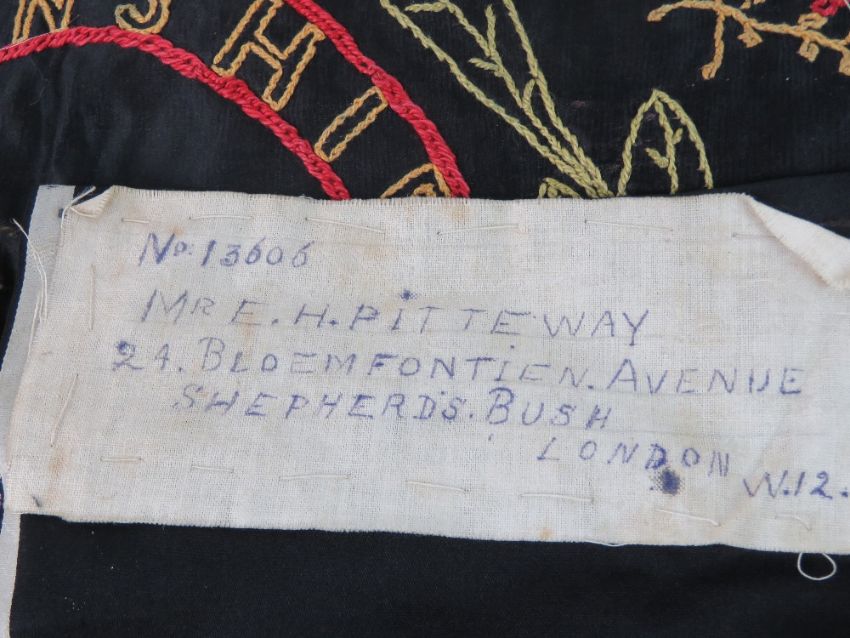 SHI
No. 13606
MR E. H. PITTEWAY
24. BLOEMFONTIEN. AVENUE
SHEPHERD'S. BUSH
LONDON W.12.